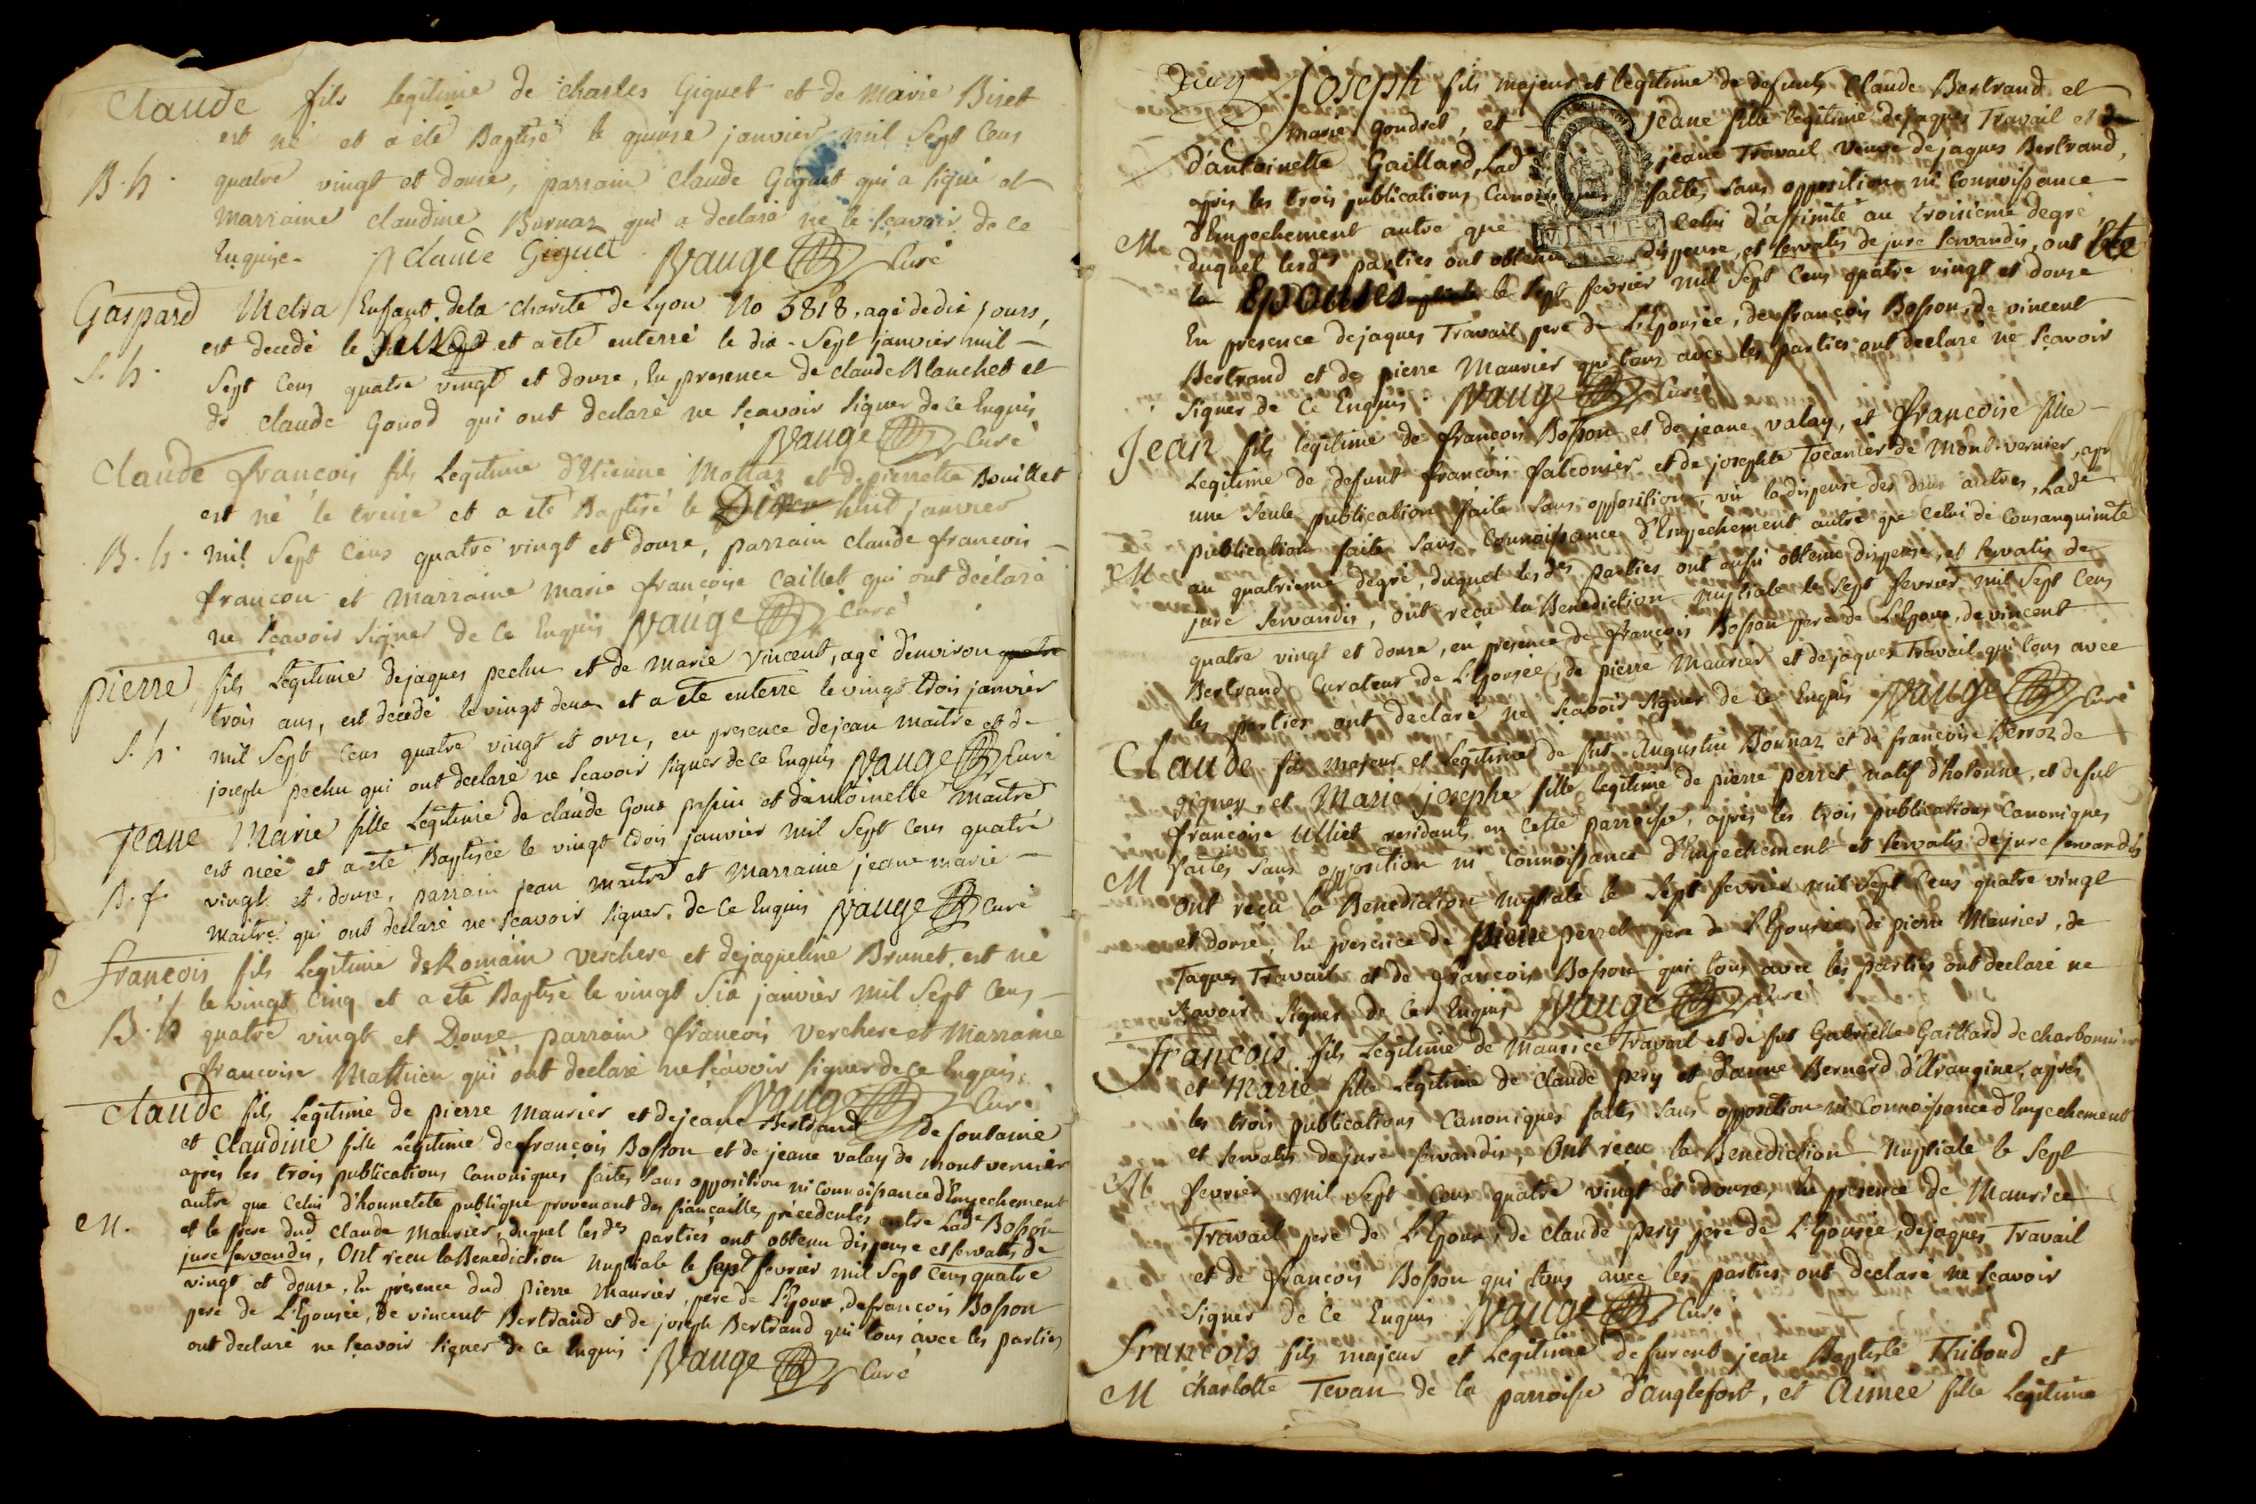 Claude fils legitime de charles Giguet et de Marie Biset
est né et a été Baptisé le quinse janvier mil Sept Cens
B. h. quatre vingt et douse, parrain Claude Giguet qui a signé et
Marraine claudine Burnaz qui a declaré ne le sçavoir de ce
Enquise. Claude Giguet Vauge Curé
Gaspard Melra Enfant de la Charité de Lyon No 5818. agé de dix jours,
est decedé le seize et a eté enterré le dix-Sept janvier mil
S. h. Sept Cens quatre vingt et douse, En presence de claude Blanchet et
de claude Gonod qui ont declaré ne sçavoir signer de ce Enquis
Vauge Curé
Claude francois fils Legitime d'Etienne Mottaz et de pierrette Bouillet
est né le treise et a eté Baptisé le Dix huit janvier
B. h. mil Sept Cens quatre vingt et douse, parrain claude francois
francon et Marraine Marie francoise Caillet qui ont declaré
ne sçavoir signer de ce Enquis Vauge Curé
pierre fils Legitime de jaques pechu et de Marie Vincent, agé d'environ quatre
trois ans, est decedé le vingt deux et a eté enterré le vingt trois janvier
S. h. mil Sept Cens quatre vingt et onze, en presence de jean maitre et de
joseph pechu qui ont declaré ne sçavoir signer de ce Enquis Vauge Curé
Jeane Marie fille Legitime de claude Goux et d'antoinette Maitre
est née et a eté Baptisée le vingt trois janvier mil Sept Cens quatre
B. f. vingt et douse, parrain jean maitre et Marraine jeane marie
maitre qui ont declaré ne sçavoir signer, de ce Enquis Vauge Curé
francois fils Legitime de Romain verchere et de jaqueline Brunet, est né
le vingt Cinq et a eté Baptisé le vingt Six janvier mil Sept Cens
B. h quatre vingt et Douse, parrain francois verchere et Marraine
francoise Mathieu qui ont declaré ne sçavoir signer de ce Enquis.
Vauge Curé
Claude fils Legitime de pierre Maurier et de jeane Bertrand de fontaine
et Claudine fille Legitime de françois Bosson et de jeane valay de mont vernier
après les trois publications Canoniques faites sans opposition ni connoissance d'Empechement
autre que Celui d'honneteté publique provenant des fiançailles précédentes entre Lade Bosson
M. et le frere dud Claude Maurier, duquel lesdes parties ont obtenu dispense et servatis de
jure servandis, Ont recu la Benediction Nuptiale le sept fevrier mil Sept Cens quatre
vingt et douse, En presence dud pierre Maurier, pere de L'Epoux, de francois Bosson
pere de L'Epousée, de vincent Bertrand et de joseph Bertrand qui tous avec les parties
ont declaré ne sçavoir signer de ce Enquis Vauge Curé
Joseph fils majeur et legitime de defunts Claude Bertrand et
Marie Goudret, et jeane fille legitime de jaques Travail et de
d'antoinette Gaillard, Lade jeane Travail veuve de jaques Bertrand,
après les trois publications Canoniques faites sans opposition ni Connoissance
M. d'Empechement autre que Celui d'affinité au troisieme degré
duquel lesdes parties ont obtenu dispense, et servatis de jure servandis, ont été
la Epousés le Sept fevrier mil Sept Cens quatre vingt et douse
En presence de jaques Travail pere de L'Epousée, de françois Bosson, de vincent
Bertrand et de pierre Maurier qui tous avec les parties ont declaré ne sçavoir
signer de ce Enquis Vauge Curé
Jean fils legitime de francois Bosson et de jeane valay, et francoise fille
Legitime de defunt francois falconier et de josephte Tocanier de Mont-vernier, apr
une seule publication faite sans opposition, vû la dispense des deux autres, Lade
publication faite sans Connoissance d'Empechement autre que Celui de Consanguinité
M au quatrieme degré, duquel lesdes parties ont aussi obtenu dispense, et servatis de
jure servandis, ont recu la Benediction Nuptiale le Sept fevrier mil Sept Cens
quatre vingt et douse, en presence de francois Bosson pere de L'Epoux, de vincent
Bertrand Curateur de L'Epousée, de pierre Maurier et de jaques Travail qui tous avec
les parties ont declaré ne sçavoir signer de ce Enquis Vauge Curé
Claude fils majeur et Legitime de fut Augustin Bonnaz et de francoise Berroz de
gignez, et Marie josephe fille legitime de pierre perret natif d'hotonne, et de fut
francoise Ulliet residants en cette parroisse, après les trois publications Canoniques
M faites sans opposition ni Connoissance d'Empechement et servatis de jure servandis
ont recu la Benediction Nuptiale le Sept fevrier mil Sept Cens quatre vingt
et douse, En presence de pierre perret pere de L'Epousée, de pierre Maurier, de
Jaques Travail et de francois Bosson qui tous avec les parties ont declaré ne
sçavoir signer de ce Enquis Vauge Curé
francois fils Legitime de Maurice Travail et de fut Gabrielle Gaillard de charbonnier
et Marie fille Legitime de Claude pery et d'anne Bernard d'Etrangine, après
les trois publications Canoniques faites sans opposition ni Connoissance d'Empechement
et servatis de jure servandis, Ont recu la Benediction Nuptiale le Sept
M fevrier mil Sept Cens quatre vingt et douse, En presence de Maurice
Travail pere de L'Epoux, de claude pery pere de L'Epousée, de jaques Travail
et de francois Bosson qui tous avec les parties ont declaré ne sçavoir
signer de ce Enquis Vauge Curé
francois fils majeur et Legitime de furent jean Baptiste Thiboud et
M charlotte Tevan de la parroisse d'anglefort, et Aimée fille Legitime